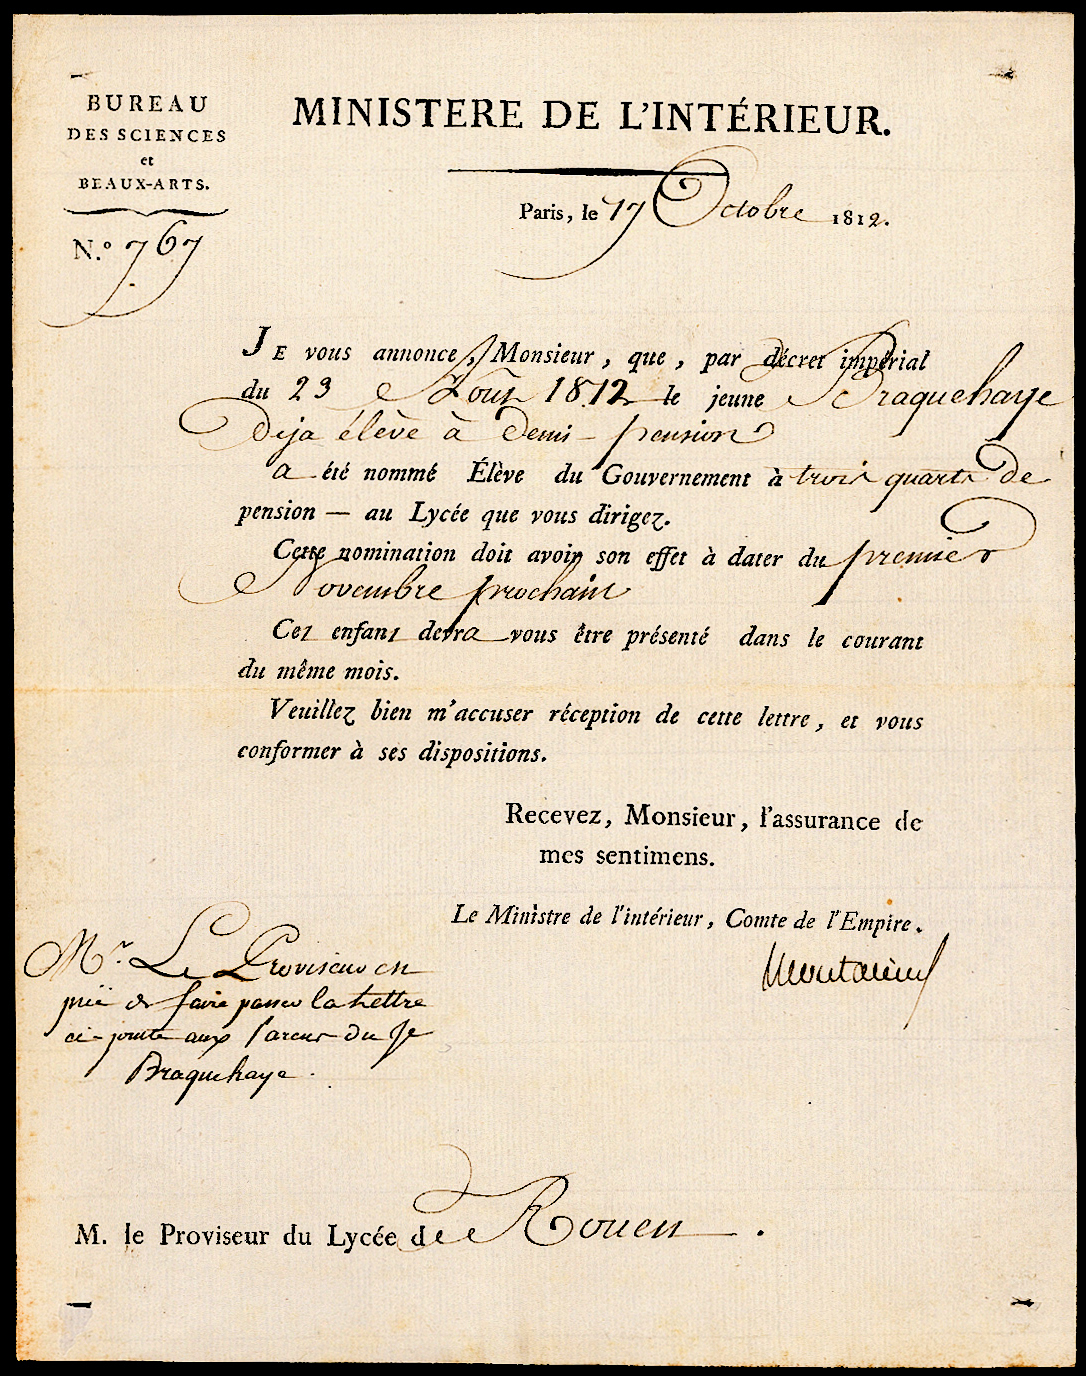 BUREAU
DES SCIENCES
et
BEAUX-ARTS.
N.º 767
MINISTERE DE L'INTÉRIEUR.
Paris, le 17 Octobre 1812.
JE vous annonce, Monsieur, que, par décret impérial
du 23 Août 1812 le jeune Braquehaye
Deja élève à Demi-pension
a été nommé Élève du Gouvernement à trois quarts de
pension — au Lycée que vous dirigez.
Cette nomination doit avoir son effet à dater du premier
Novembre prochain
Cet enfant devra vous être présenté dans le courant
du même mois.
Veuillez bien m'accuser réception de cette lettre, et vous
conformer à ses dispositions.
Recevez, Monsieur, l'assurance de
mes sentimens.
Le Ministre de l'intérieur, Comte de l'Empire.
Montalivet
Mr. Le Proviseur est
prié de faire passer la Lettre
ci-jointe aux Parens du Je
Braquehaye.
M. le Proviseur du Lycée de Rouen.